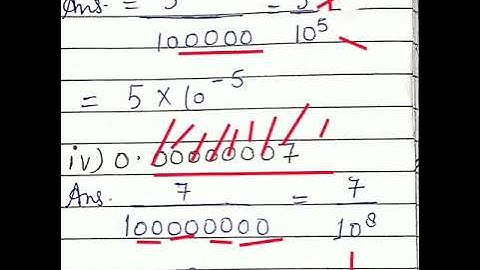 Ans. = 5 = 5
100000 10⁵
= 5 × 10⁻⁵
iv) 0.00000007
Ans. 7 = 7
100000000 10⁸